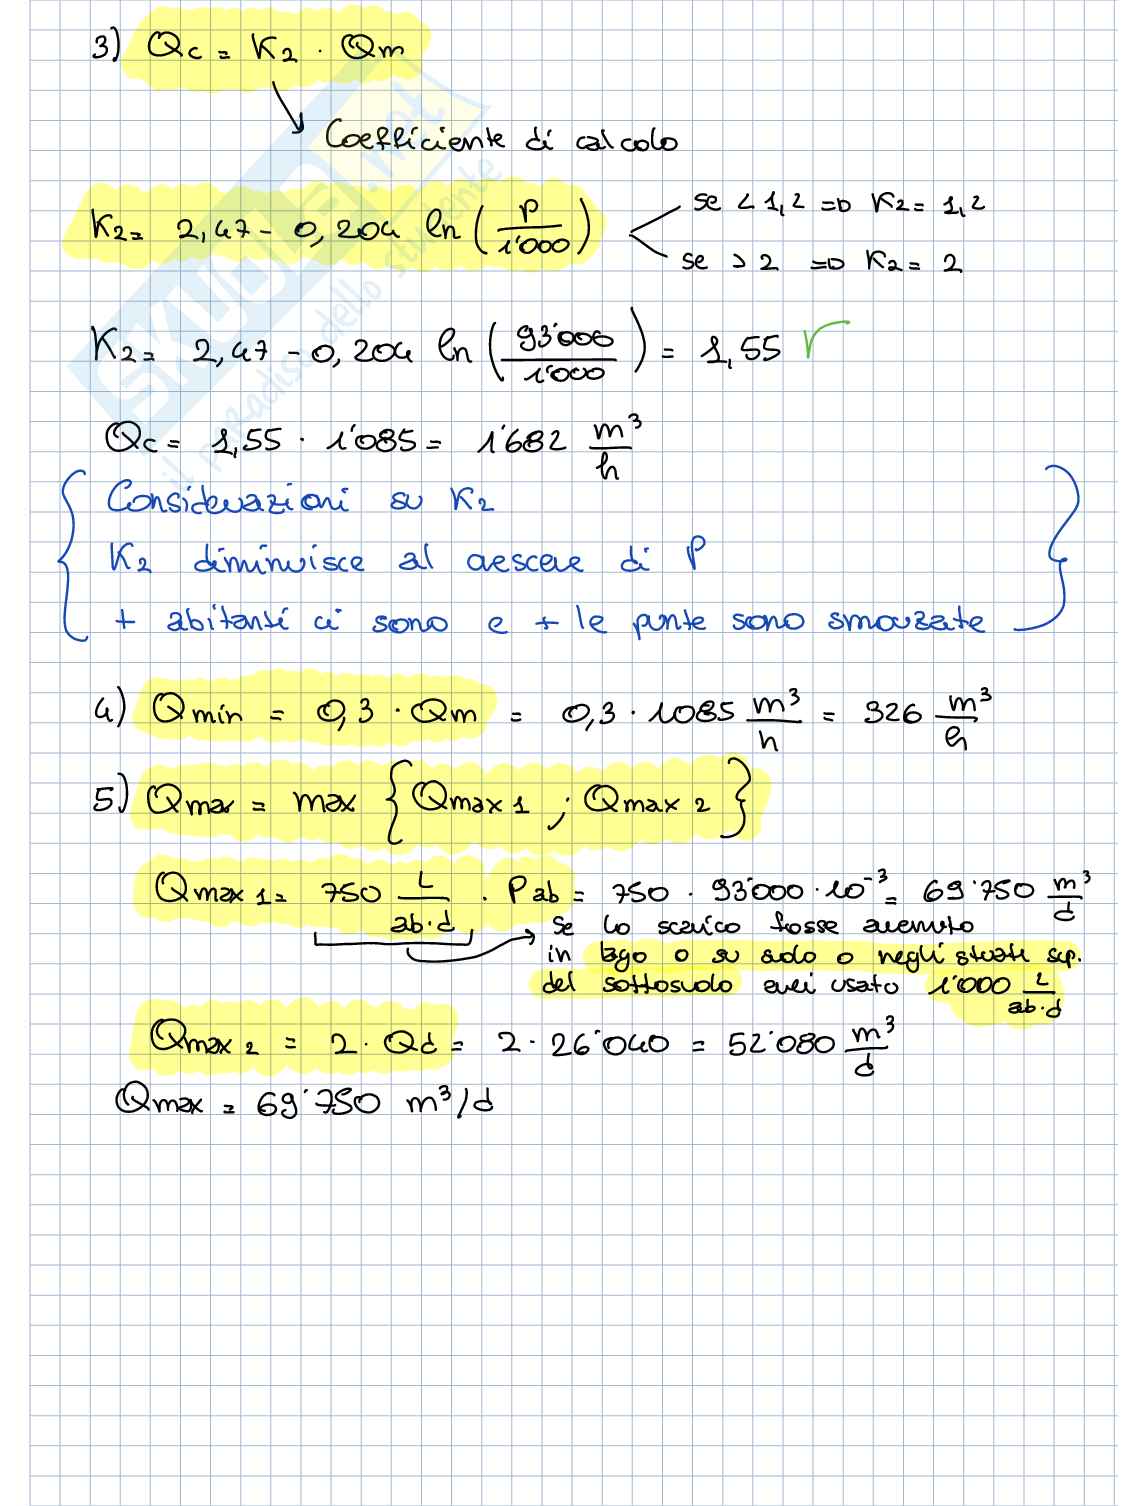 3) Qc = K2 · Qm
Coefficiente di calcolo
K2 = 2,47 - 0,204 ln (P / 1'000) se < 1,2 => K2 = 1,2
se > 2 => K2 = 2
K2 = 2,47 - 0,204 ln (93'000 / 1'000) = 1,55 √
Qc = 1,55 · 1'085 = 1'682 m³/h
Considerazioni su K2
K2 diminuisce al crescere di P
+ abitanti ci sono e + le punte sono smorzate
4) Qmin = 0,3 · Qm = 0,3 · 1085 m³/h = 326 m³/h
5) Qmax = max { Qmax 1 ; Qmax 2 }
Qmax 1 = 750 L/ab·d · Pab = 750 · 93'000 · 10⁻³ = 69'750 m³/d
se lo scarico fosse avvenuto
in lago o su suolo o negli strati sup.
del sottosuolo avrei usato 1'000 L/ab·d
Qmax 2 = 2 · Qd = 2 · 26'040 = 52'080 m³/d
Qmax = 69'750 m³/d
SKUOLA.net
il paradiso dello studente